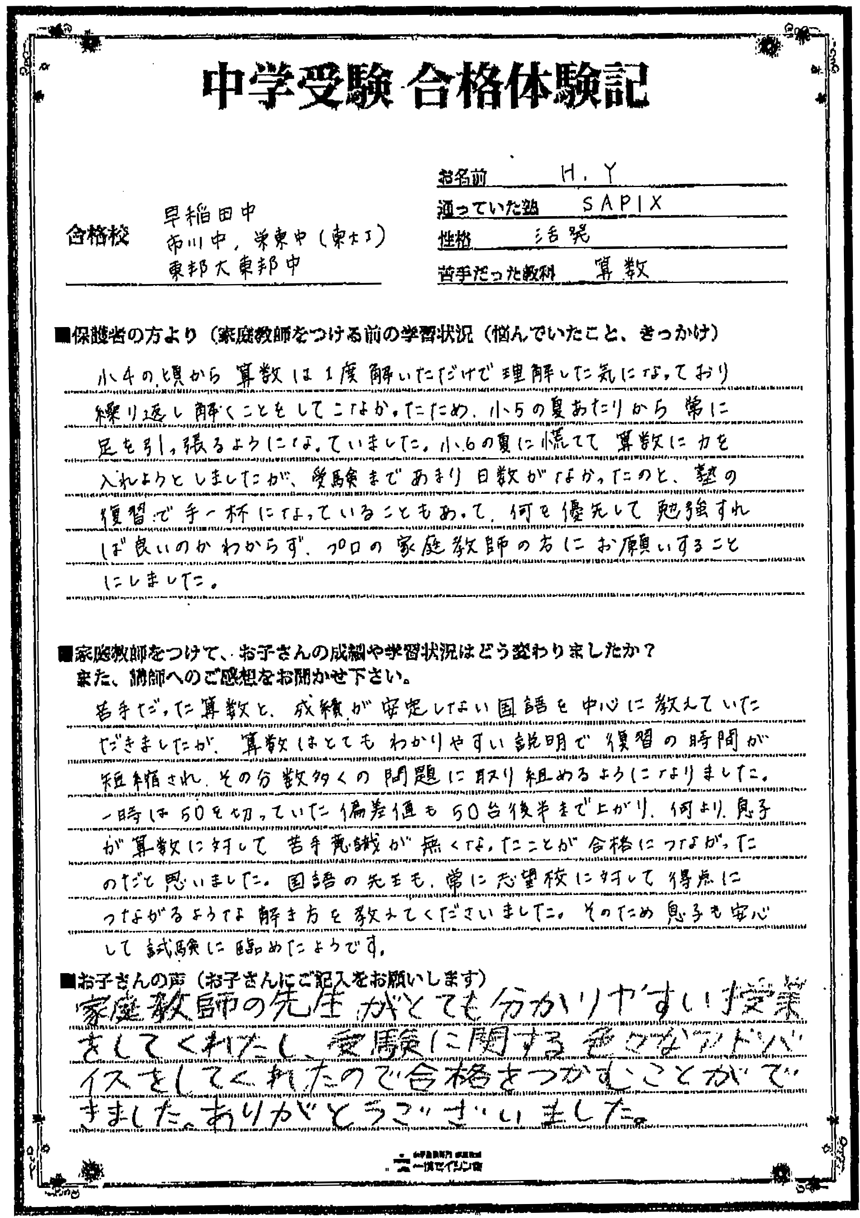 中学受験 合格体験記
お名前 H.Y
通っていた塾 SAPIX
性格 活発
苦手だった教科 算数
合格校
早稲田中
市川中, 栄東中(東大I)
東邦大東邦中
■保護者の方より(家庭教師をつける前の学習状況(悩んでいたこと、きっかけ)
小4の頃から算数は1度解いただけで理解した気になっており
繰り返し解くことをしてこなかったため、小5の夏あたりから常に
足を引っ張るようになっていました。小6の夏に慌てて算数に力を
入れようとしましたが、受験まであまり日数がなかったのと、塾の
復習で手一杯になっていることもあって、何を優先して勉強すれ
ば良いのかわからず、プロの家庭教師の方にお願いすること
にしました。
■家庭教師をつけて、お子さんの成績や学習状況はどう変わりましたか?
また、講師へのご感想をお聞かせ下さい。
苦手だった算数と、成績が安定しない国語を中心に教えていた
だきましたが、算数はとてもわかりやすい説明で復習の時間が
短縮され、その分数多くの問題に取り組めるようになりました。
一時は50を切っていた偏差値も50台後半まで上がり、何より、息子
が算数に対して苦手意識が無くなったことが合格につながった
のだと思いました。国語の先生も、常に志望校に対して得点に
つながるような解き方を教えてくださいました。そのため息子も安心
して試験に臨めたようです。
■お子さんの声(お子さんにご記入をお願いします)
家庭教師の先生がとても分かりやすい授業
をしてくれたし、受験に関する色々なアドバ
イスをしてくれたので合格をつかむことがで
きました。ありがとうございました。
一橋セイシン会